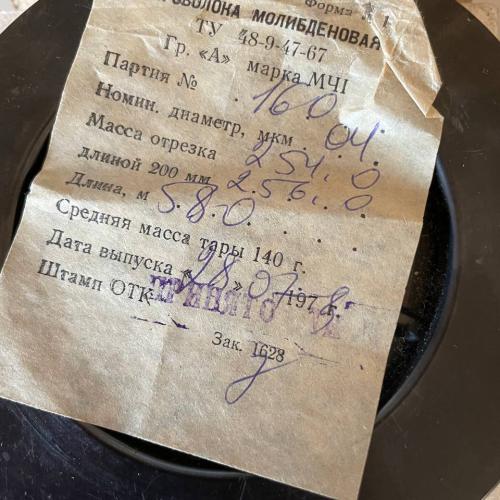 Форма № 1
ПРОВОЛОКА МОЛИБДЕНОВАЯ
ТУ 48-9-47-67
Гр. «А» марка МЧ1
Партия № 160
Номин. диаметр, мкм 04
Масса отрезка 254,0
длиной 200 мм 256,0
Длина, м 580
Средняя масса тары 140 г.
Дата выпуска «28» 07 1978 г.
Штамп ОТК ПРИНЯТО
Зак. 1628